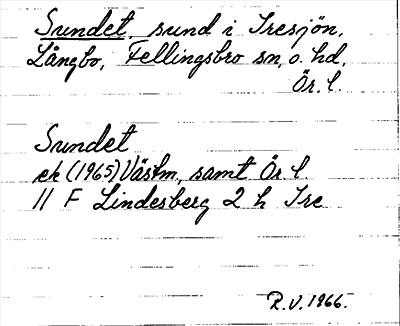 Sundet, sund i Tresjön,
Långbo, Fellingsbro sn, o. hd,
Ör. l.
Sundet
ek (1965) Västm, samt Ör l.
11 F Lindesberg 2 h Tre
R.V. 1966.